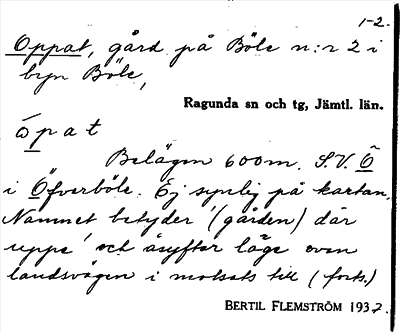 1-2.
Oppat, gård på Böle n:r 2 i
byn Böle,
Ragunda sn och tg, Jämtl. län.
òpat
Belägen 600m. S.V. Ö
i Öfverböle. Ej synlig på kartan.
Namnet betyder '(gården) där
uppe' och åsyftar läge ovan
landsvägen i motsats till (forts.)
BERTIL FLEMSTRÖM 1937.